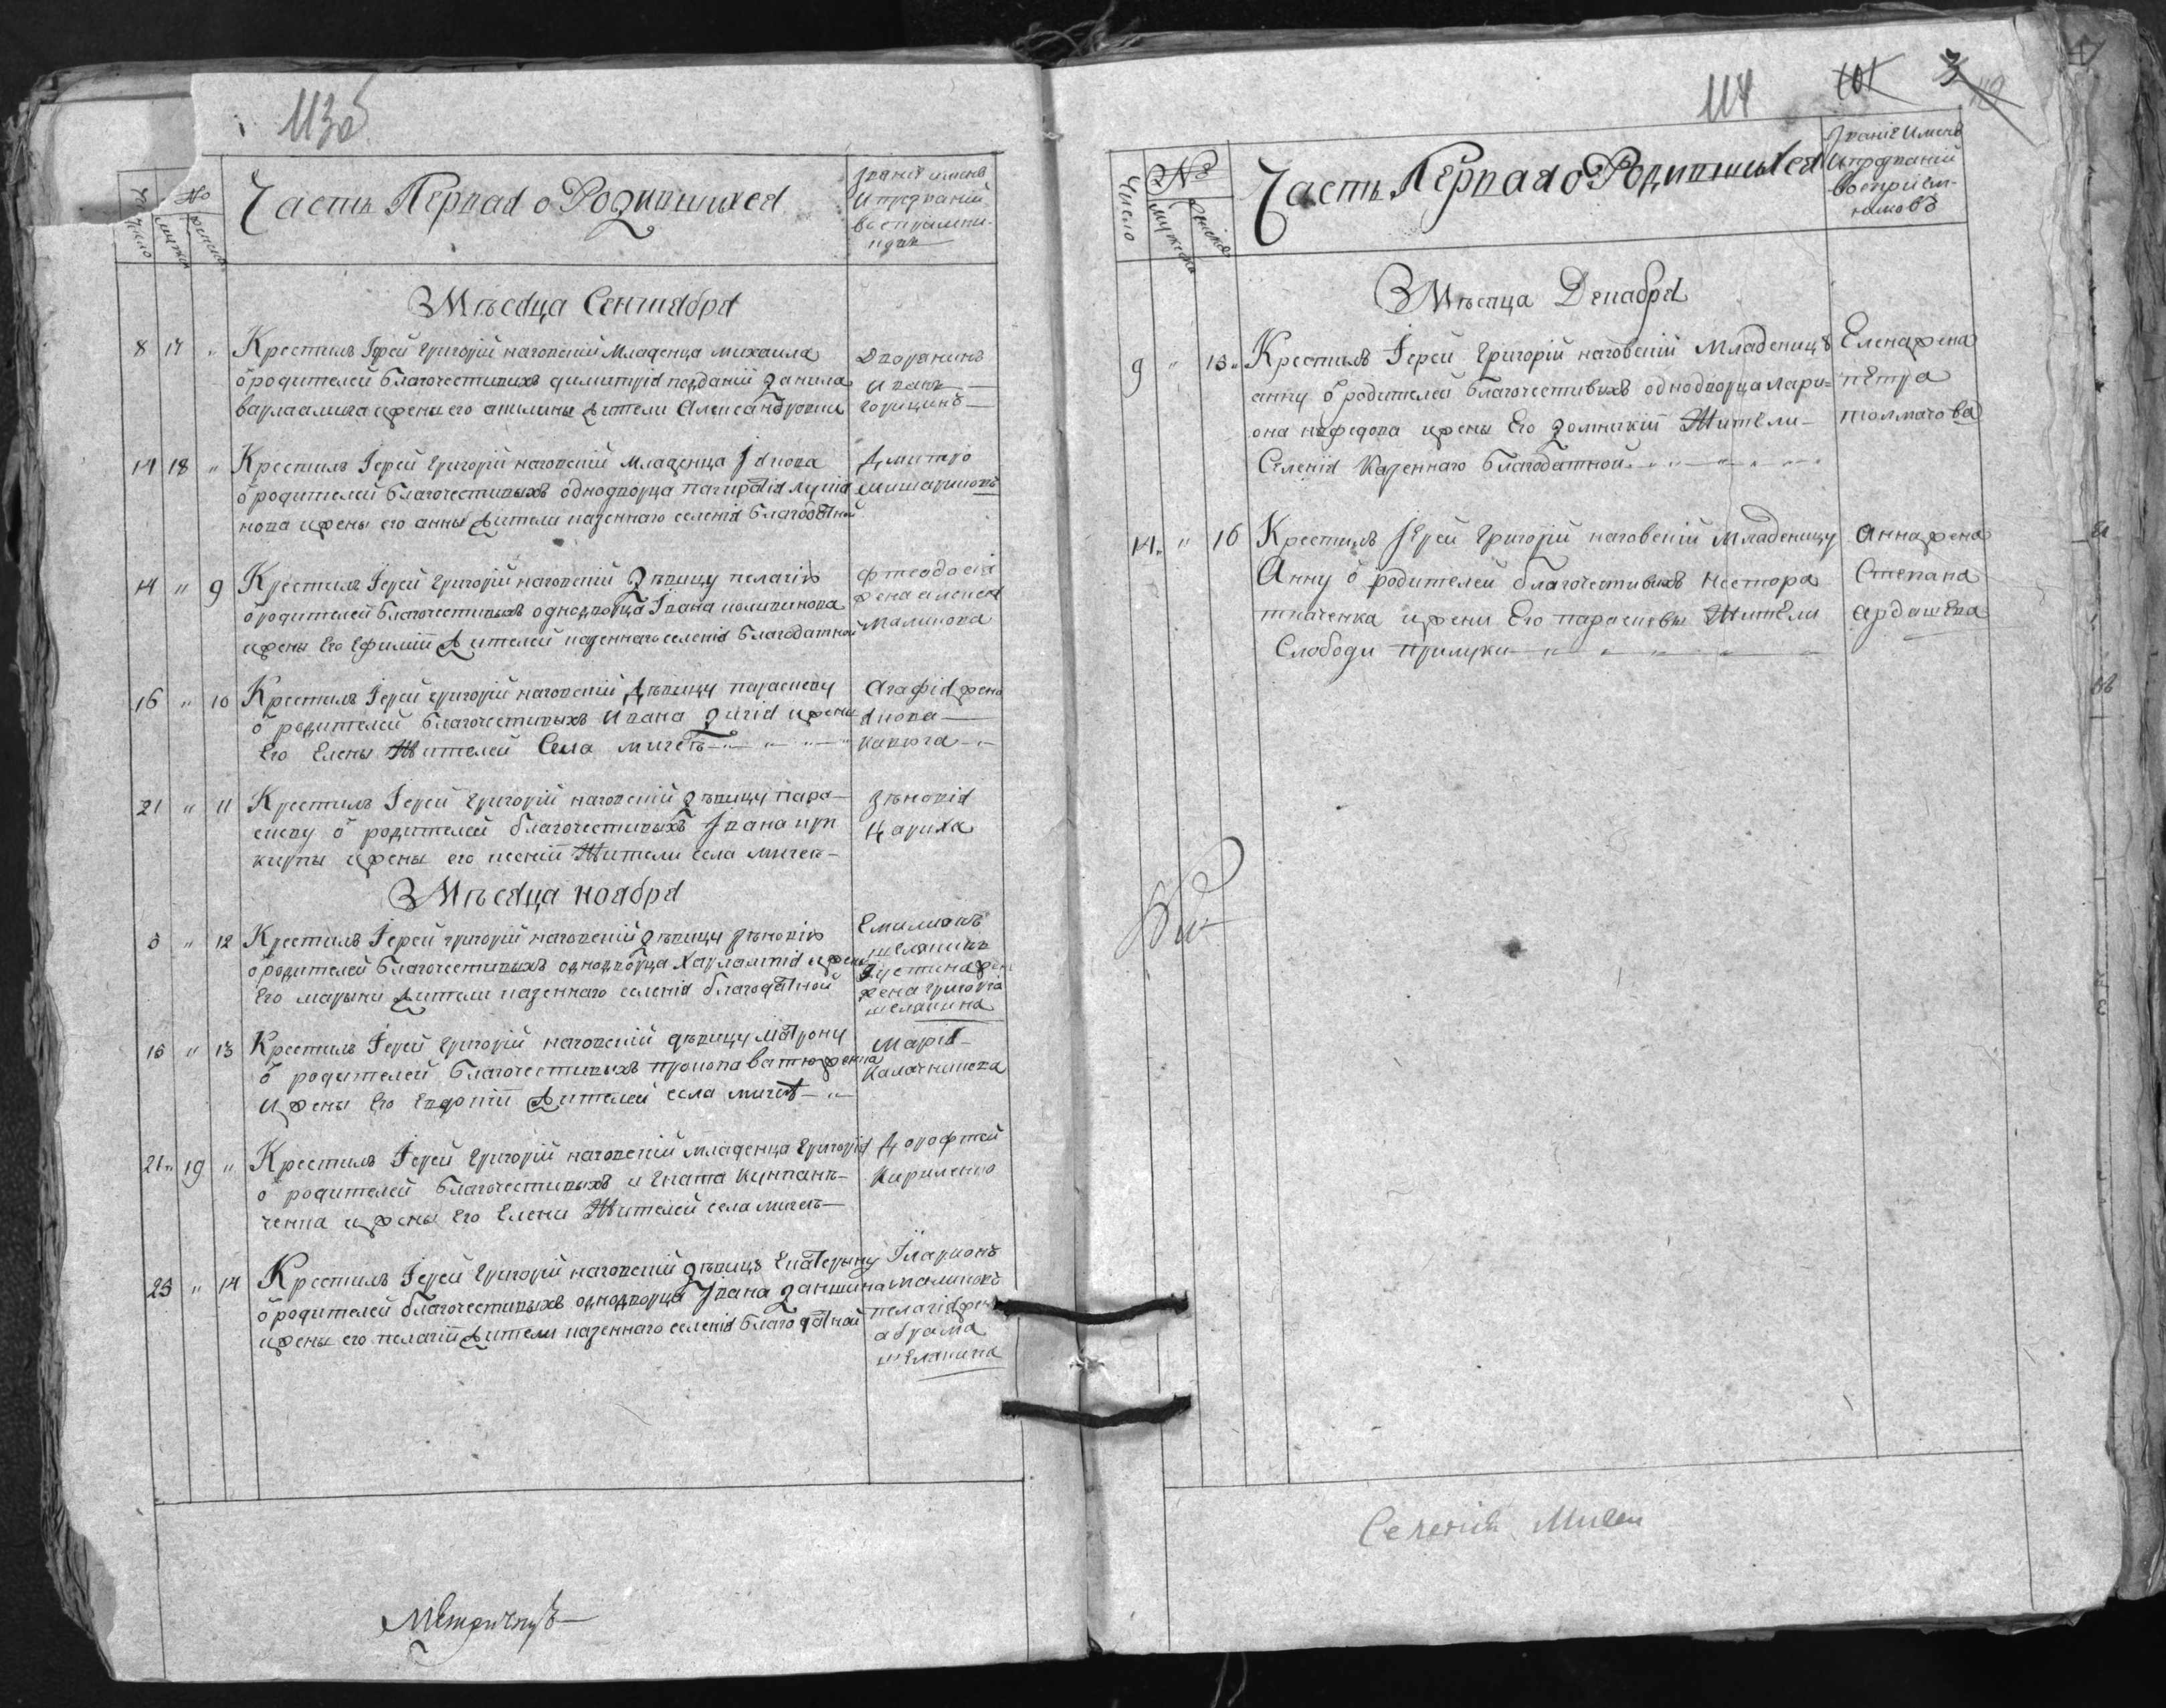 113б
Число
№
мужеска
женска
Часть Первая о Родившихся
Званіе имена
И прозваній
воспріемни-
ковъ
Мѣсяца Сентября
8 17 „ Крестилъ Іерей Григорій наговскій Младенца михаила
ѿ родителей благочестивихъ
варлаамива и жены его акилины жители Александровки
Дворянинъ
Иванъ —
горицинъ —
14 18 „ Крестилъ Іерей Григорій наговскій младенца Якова
ѿ родителей благочестивыхъ однодворца
нова и жены его анны жители казеннаго селенія благодатной
Дмитро
14 „ 9 Крестилъ Іерей Григорій наговскій Дѣвицу пелагію
ѿ родителей благочестивыхъ однодворца Івана
и жены Его Ефиміи Жителей казеннаго селенія благодатной
Фтеодосія
жена алексея
маликова
16 „ 10 Крестилъ Іерей григорій наговскій Дѣвицу параскеву
ѿ родителей благочестивыхъ Ивана и жены
Его Елены Жителей Села мигеѣ
Агафія жена
Якова —
какюга
21 „ 11 Крестилъ Іерей Григорій наговскій дѣвицу пара-
скеву ѿ родителей благочестивыхъ Івана
и жены его ксеніи Жители села мигеи —
Зѣновія
Цариха
Мѣсяца ноября
5 „ 12 Крестилъ Іерей григорій наговскій дѣвицу зѣновію
ѿ родителей благочестивыхъ однодворца Харлампія и жены
Его марыни жители казеннаго селенія благодатной
Емиліанъ
шелякинъ
Іустина
жена григорія
шелякина
15 „ 13 Крестилъ Іерей Григорій наговскій дѣвицу матрону
ѿ родителей благочестивыхъ прокопа ватюженка
И жены Его Евдокіи Жителей села мигеѣ
Марія —
Калачникова
21 19 „ Крестилъ Іерей Григорій наговскій младенца Григорія
ѿ родителей благочестивыхъ игната Кунпань-
ченка и жены Его Елени Жителей села мигеи —
Дорофтей
Кириленко
25 „ 14 Крестилъ Іерей Григорій наговскій дѣвицу Екатерину
ѿ родителей благочестивыхъ однодворца Івана даншина
и жены его пелагіи жители казеннаго селенія благодатной
Іларионъ
маликовъ
пелагія жена
абрама
шелякина
114
101
Число
№
мужеска
женска
Часть Первая о Родившихся
Званіе Именъ
И прозваній
воспріем-
никовъ
Мѣсяца Декабря
9 „ 15 Крестилъ Іерей Григорій наговскій Младеницу
анну ѿ родителей благочестивихъ однодворца лари=
она нефедова и жены Его домникіи Жители —
Селенія Казеннаго благодатной
Елена жена
пѣтра
толмачова
14 „ 16 Крестилъ Іерей Григорій наговскій Младеницу
Анну ѿ родителей благочестивихъ нестора
ткаченка и жени Его параскевы Жители
Слободи прилуки
Анна жена
Степана
ардашева
Селенія Мигеи